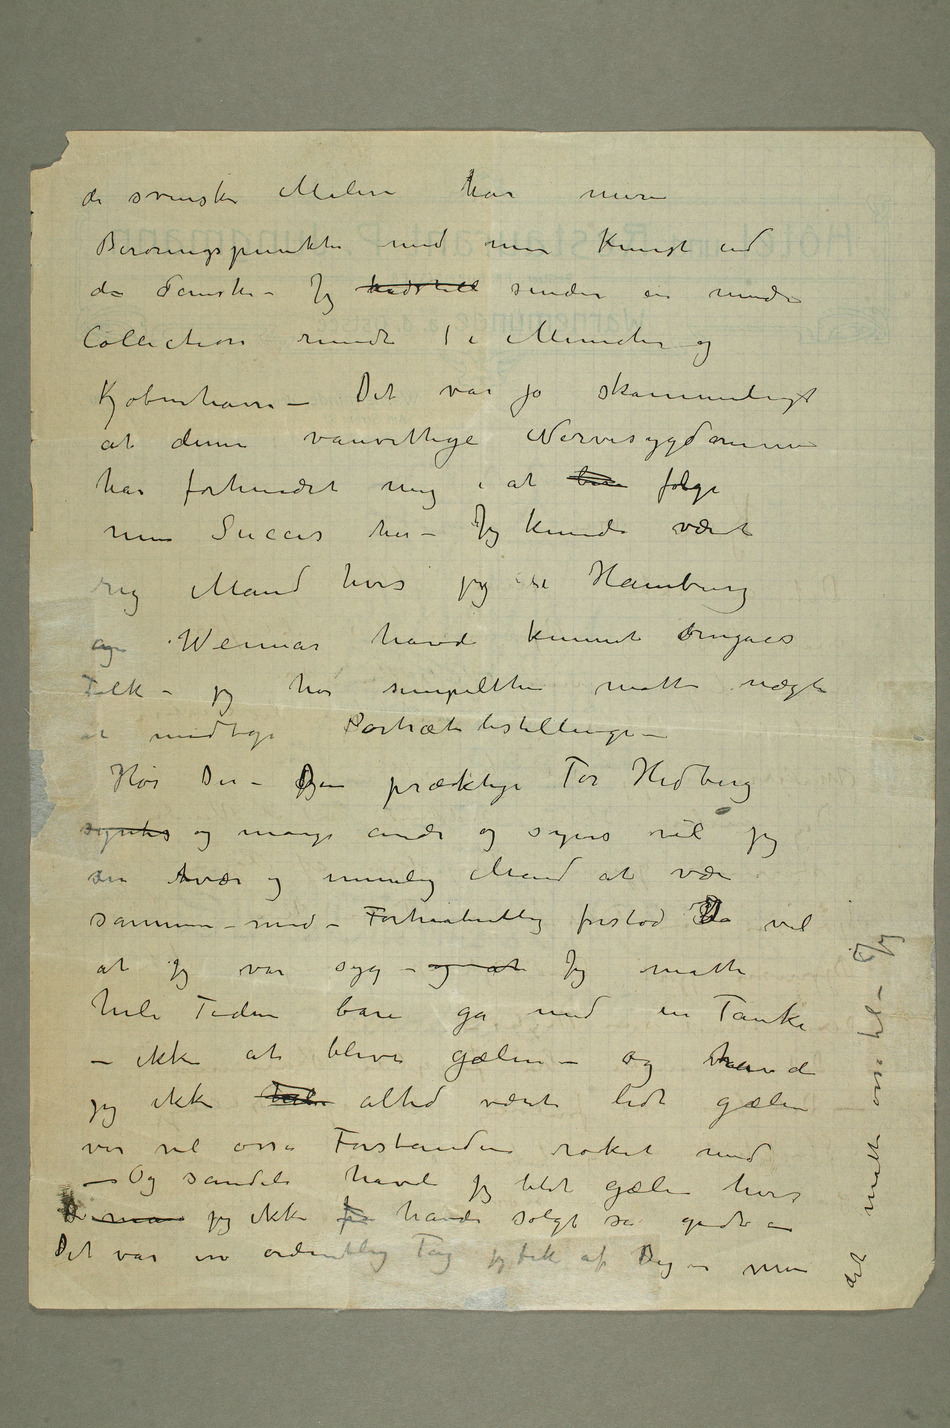 de svenske Malere har mere
Berøringspunkter med min Kunst end
de danske – Jeg hadstill sender en mindre
Collection rundt i München og
Kjøbenhavn – Det var jo skammeligt
at denne vanvittige Nervesygdommen
har forhindret mig i at følge
min Succes her – Jeg kunde været
rig Mand hvis jeg i Hamburg
og Weimar havde kunnet omgaaes
Folk – jeg har simpelthen måtte nægte
at modtage Portrætbestillinger –
Hør Du – Den prægtige Tor Hedberg
syntes og mange andre og synes vel jeg
en tvær og umulig Mand at være
sammen – med – Forhåbentlig forstod De vel
at jeg var syg – og at Jeg måtte
hele Tiden bare gå med en Tanke
– ikke at blive gælen – og havde
jeg ikke altid været lidt gælen
var vel osså Forstanden røket med
– Og sandeli havde jeg blet gælen hvis
De man jeg ikke havde solgt så godt –
Det var en ordentlig Tag jeg fik af Dig – men
det måtte osså til – Jeg